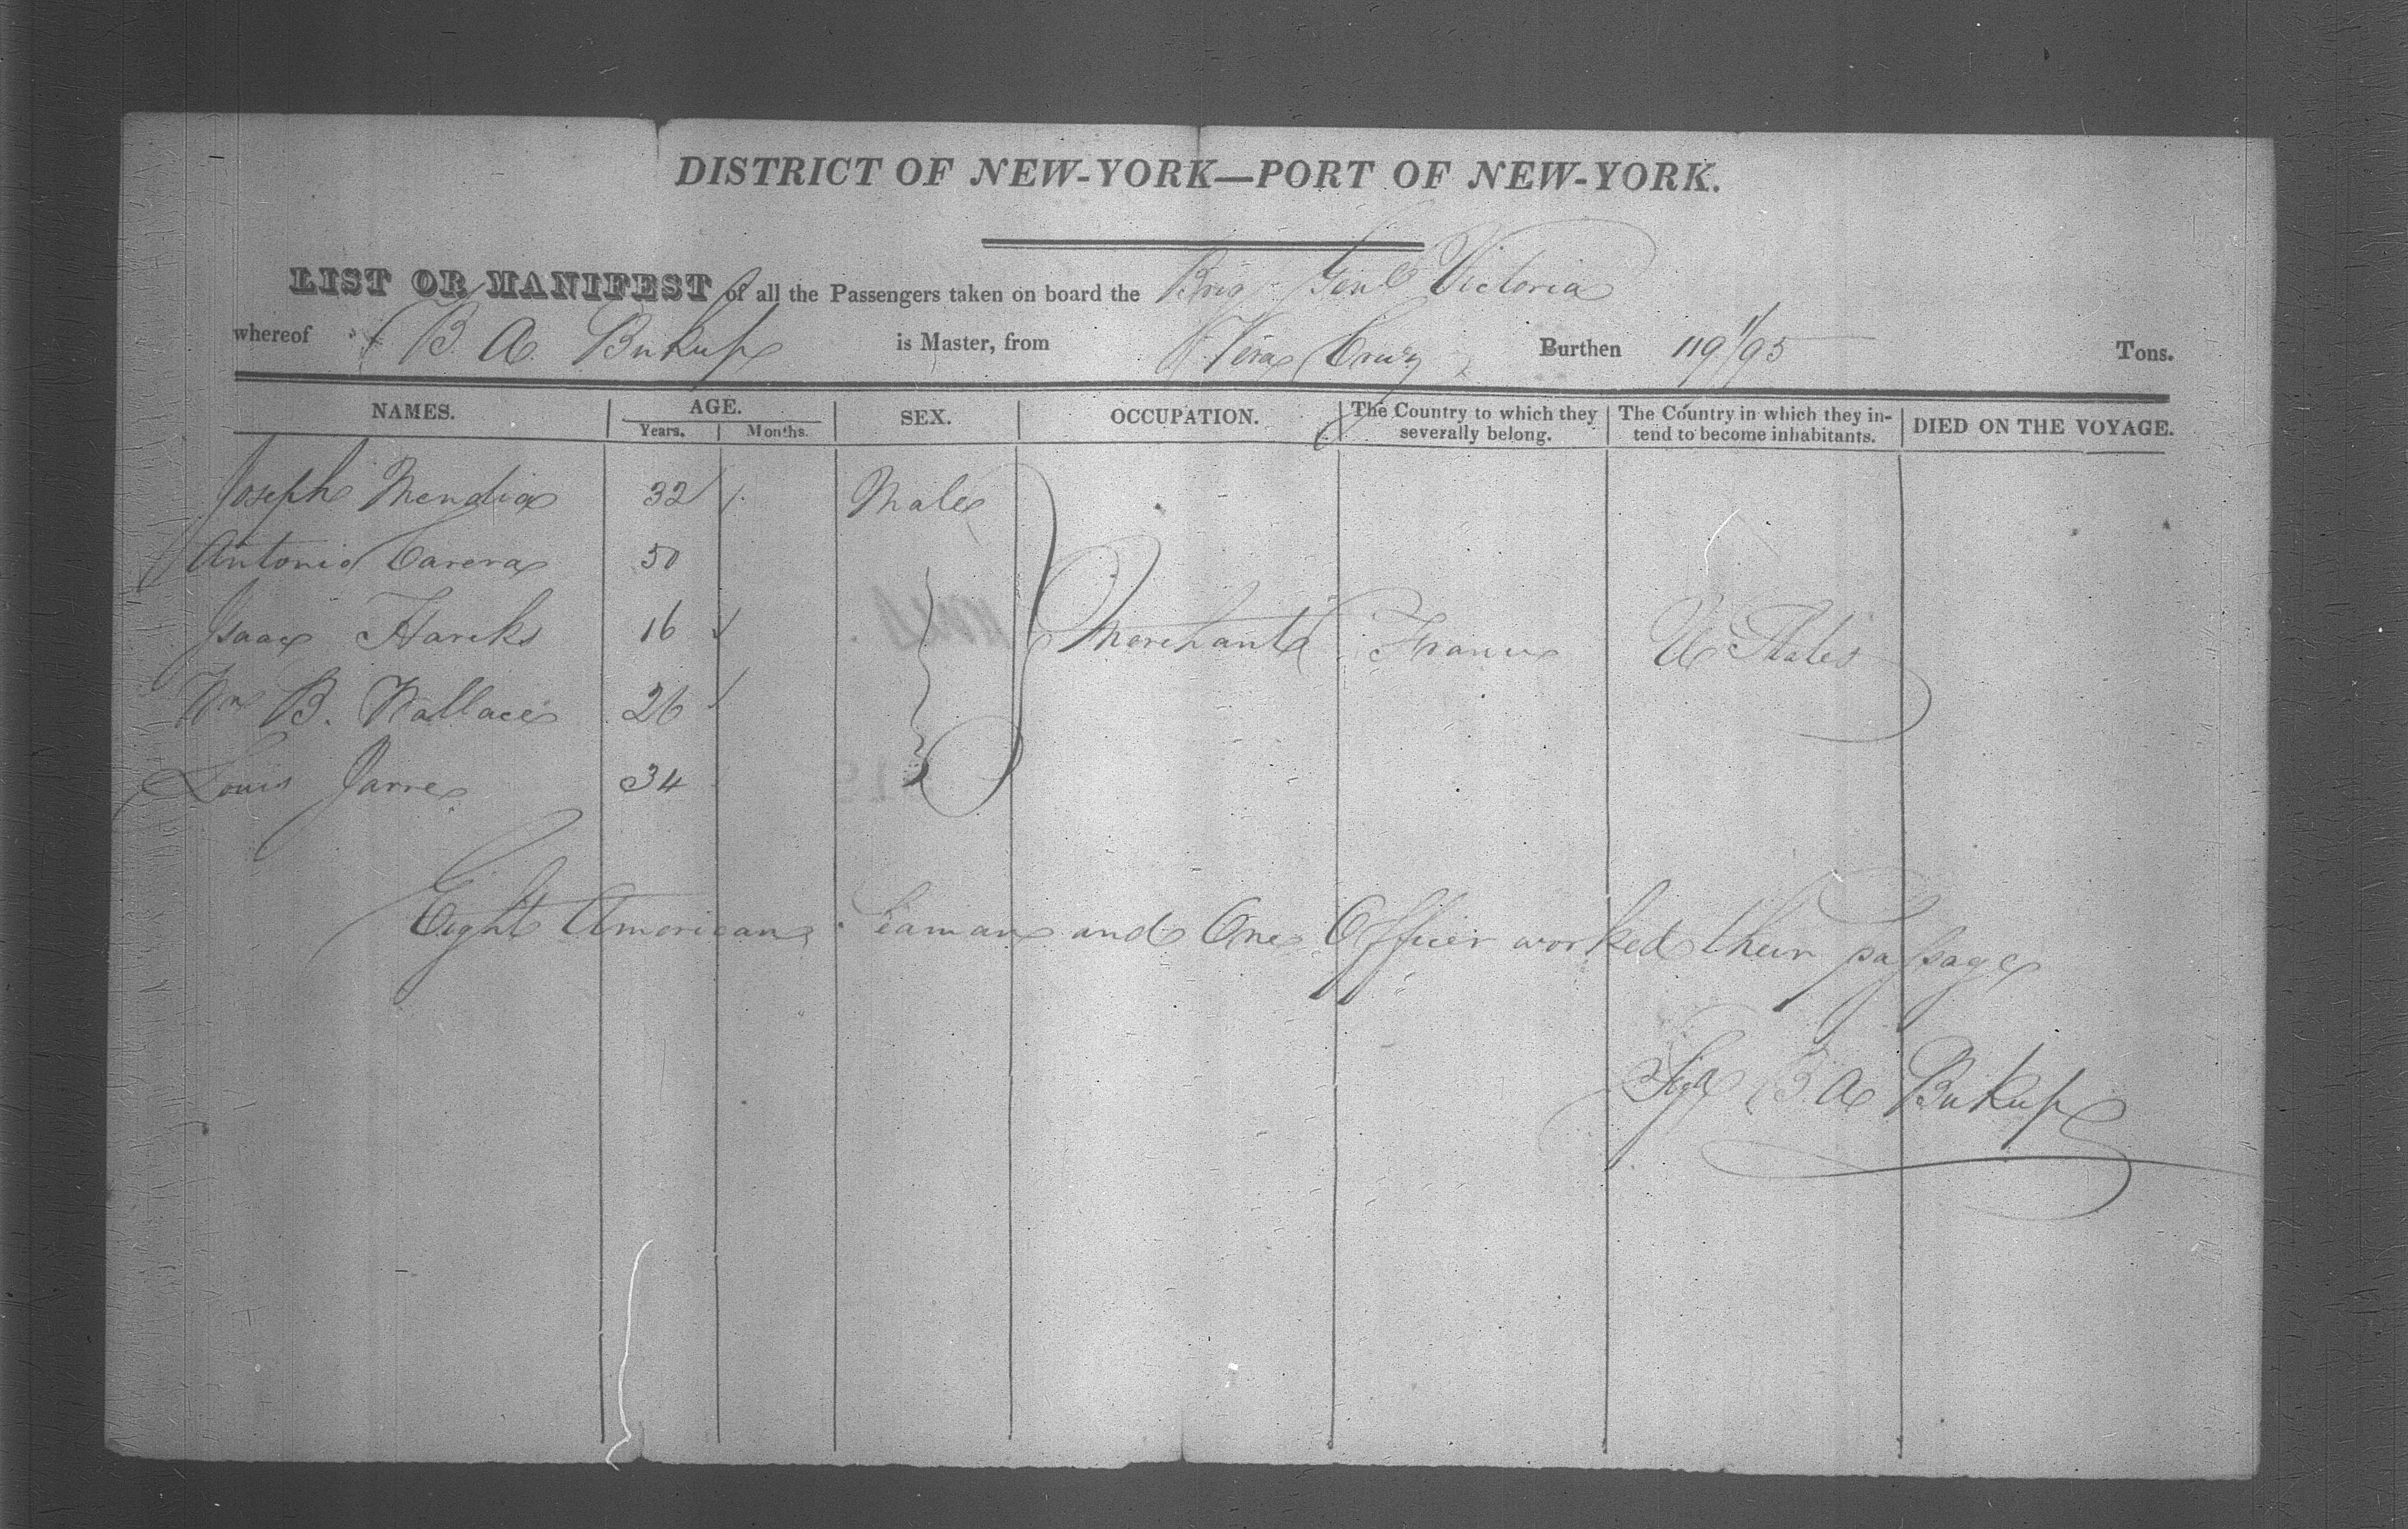 DISTRICT OF NEW-YORK—PORT OF NEW-YORK.
LIST OR MANIFEST of all the Passengers taken on board the Brig Genl Victoria
whereof B. A. is Master, from Vera Cruz Burthen 119 11/95 Tons.
NAMES. AGE. SEX. OCCUPATION. The Country to which they severally belong. The Country in which they intend to become inhabitants. DIED ON THE VOYAGE.
Years. Months.
Joseph Mendia 32 Male
Antonio Carera 50
Isaac 16 Merchants France U States
Wm B. Wallace 26
Louis Jarre 34
Eight American Seaman and One Officer worked their passage
B A